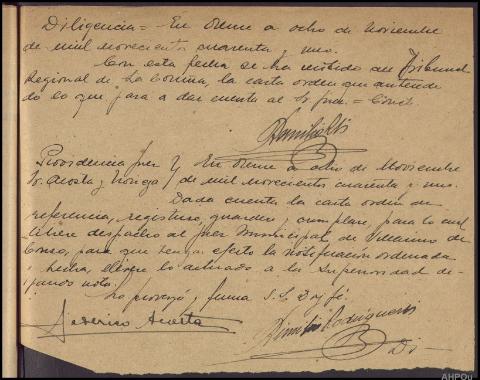 Diligencia = En Orense a ocho de Noviembre
de mil novecientos cuarenta y uno.
Con esta fecha se ha recibido del Tribunal
Regional de La Coruña, la carta orden que antecede
de lo que paso a dar cuenta al Sr Juez =
Providencia Juez En Orense a ocho de Noviembre
Sr. Acosta y de mil novecientos cuarenta y uno.
Dada cuenta, la carta orden de
referencia, registrese, guardese y cumplase, para lo cual
librese despacho al Juez Municipal de Villarino de
Conso, para que tenga efecto la notificación ordenada
y hecha, elevese lo actuado a la Superioridad de-
jando nota.
Lo proveyó y firma S.S. Doy fé.
Severino Acosta
Rodriguez
Di
AHPOu